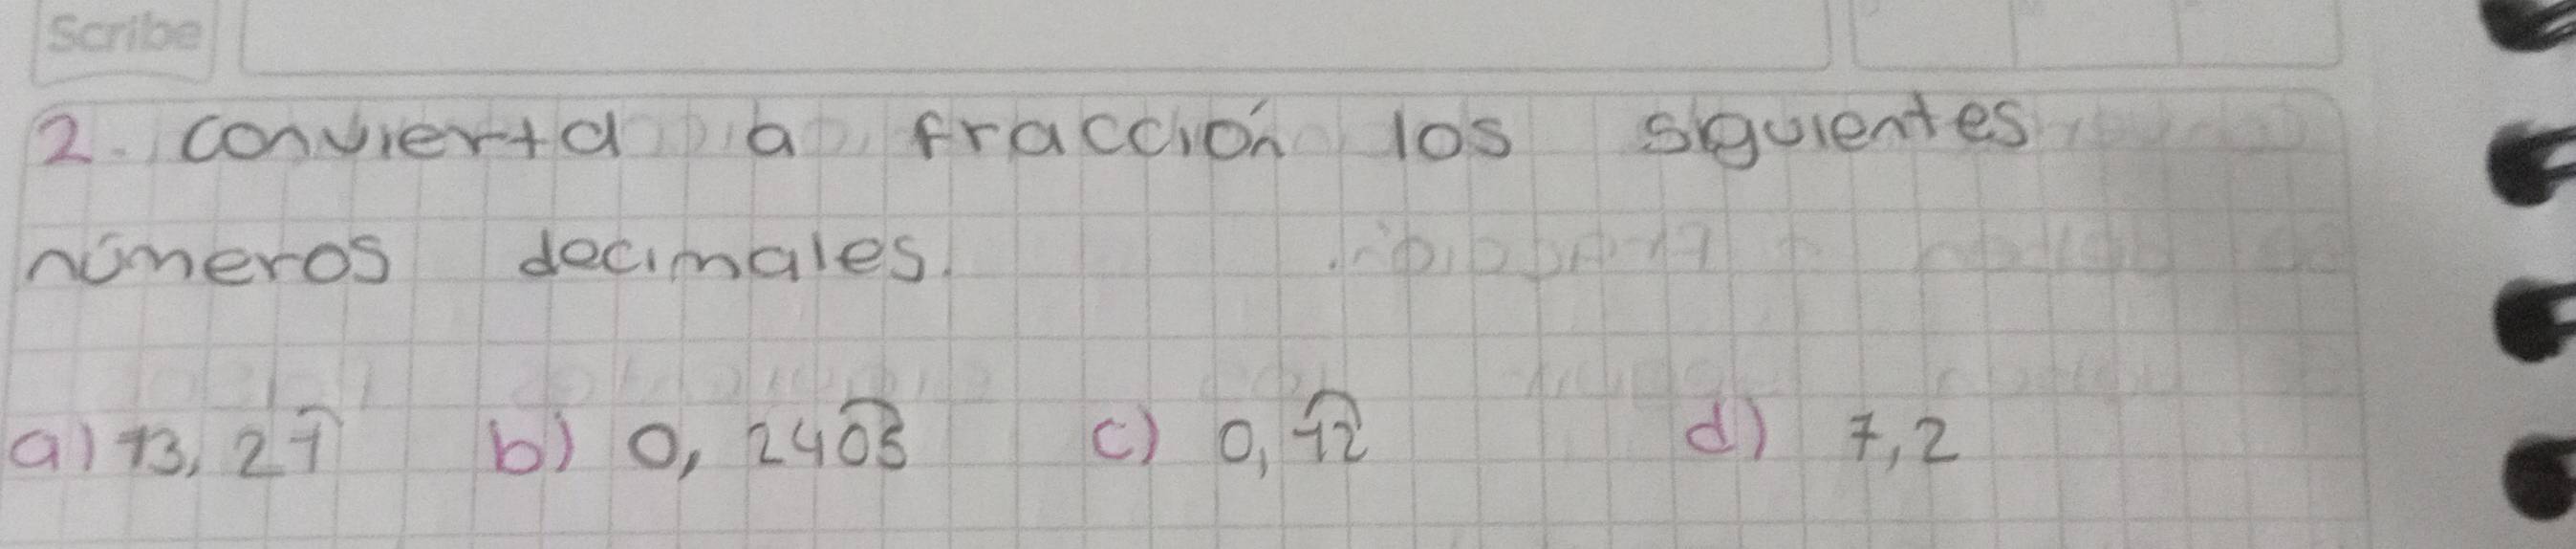 Scribe
2. convierta a fracción los siguientes
números decimales.
a) 13, 21̑ b) 0, 240͡3 c) 0, 1͡2 d) 7,2